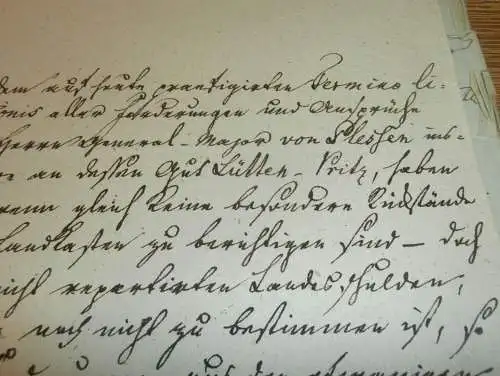 dem auf heute praefigirten Termino li-
onis aller Forderungen und Ansprüche
Herrn General-Major von Plessen ins-
an dessen Gut Lütten-Pritz, haben
wenn gleich keine besondere Rückstände
Landkasten zu berichtigen sind - doch
nicht repartirten Landesschulden,
noch nicht zu bestimmen ist, so
aus den etwanigen